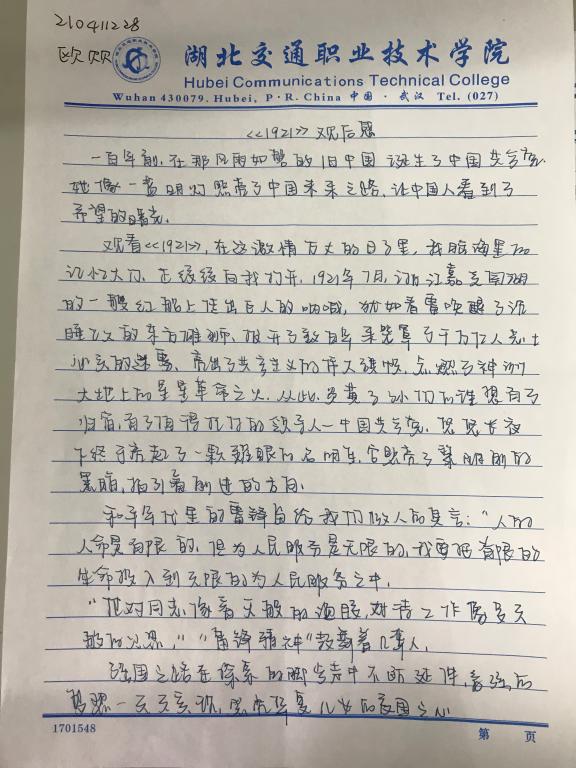 210411228
欧贝
湖北交通职业技术学院
Hubei Communications Technical College
Wuhan 430079. Hubei, P·R. China 中国·武汉 Tel. (027)
<<1921>>观后感
一百年前,在那风雨如磐的旧中国诞生了中国共产党。
她像一盏明灯照亮了中国未来之路,让中国人看到了
希望的曙光。
观看<<1921>>,在这激情万丈的日子里,我脑海里的
记忆大门,正缓缓向我打开,1921年7月,浙江嘉兴南湖
的一艘红船上传出巨人的呐喊,犹如春雷唤醒了沉
睡已久的东方雄狮,拨开了数百年来笼罩了千万仁人志士
心头的迷雾,亮出了共产主义的伟大旗帜,点燃了神州
大地上的星星革命之火,从此,炎黄子孙们的理想有了
归宿,有了值得托付的领导人—中国共产党,漫漫长夜
下终于亮起了一颗耀眼的启明星,它照亮了黎明前的
黑暗,指引着前进的方向。
和平年代里的雷锋留给我们做人的真言:“人的
人命是有限的,但为人民服务是无限的,我要把有限的
生命投入到无限的为人民服务之中,
“他对同志像春天般的温暖,对待工作像夏天
般的火热,”“雷锋精神”鼓舞着几辈人,
强国之路在探索的脚步声中不断延伸,富强的
梦想一天天实现,
1701548
第 页